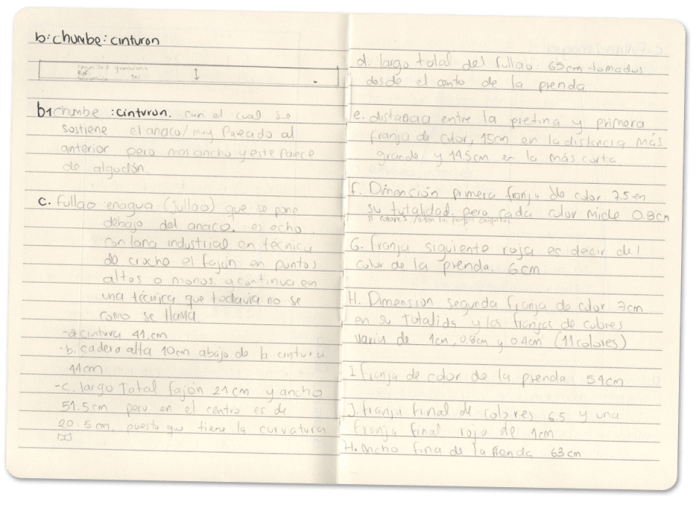 b: chumbe: cinturon
b1 chumbe : cinturon. con el cual se
sostiene el anaco/ muy parecido al
anterior pero mas ancho y este parece
de algodón
c. Fullao enagua (fullao) que se pone
debajo del anaco. es echo
con lana industrial en técnica
de croche el fajón en puntos
altos o manos y continua en
una técnica que todavia no se
como se llama
-a cintura 41.cm
-b. cadera alta 10cm abajo de la cintura
44cm
-c. largo Total fajón 21cm y ancho
51.5cm pero en el centro es de
20.5cm. puesto que tiene la curvatura
d. largo total del fullao: 69cm tomados
desde el canto de la prenda
e. distancia entre la pretina y primera
franja de color, 15cm en la distancia más
grande y 14.5cm en la más corta.
F. Dimención primera franja de color 7.5cm
su tutalidad, pero cada color mide 0.8cm
G. franja siguiente roja es decir del
color de la prenda. 6cm
H. Dimension segunda franja de color 7cm
en su Totalida y las franjas de colores
varia de 1cm, 0.8cm y 0.4cm (11colores)
I franja de color de la prenda 54cm
J. franja final de colores 6.5 y una
franja final roja de 1cm
H. Ancho fina de la Banda 63cm